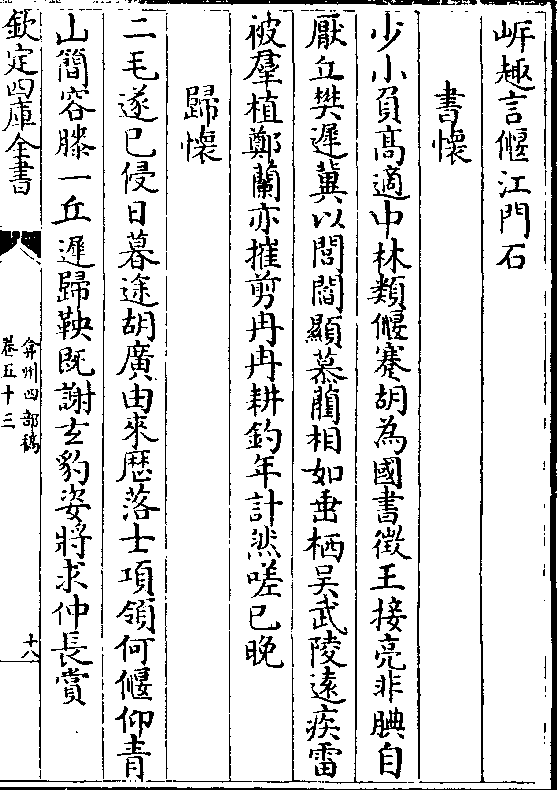 岓趣言偃江門石
書懷
少小負髙適中林類偃蹇胡為國書徵王接亮非腆自
厭丘樊遲冀以閭閻顯慕藺相如垂栖吴武陵遠疾雷
被羣植鄭蘭亦摧剪冉冉耕釣年計然嗟已晚
歸懷
二毛遂已侵日暮途胡廣由來歴落士項領何偃仰青
山簡容滕一丘遲歸鞅既謝玄豹姿將求仲長賞
欽定四庫全書
弇州四部稿
卷五十三
十八